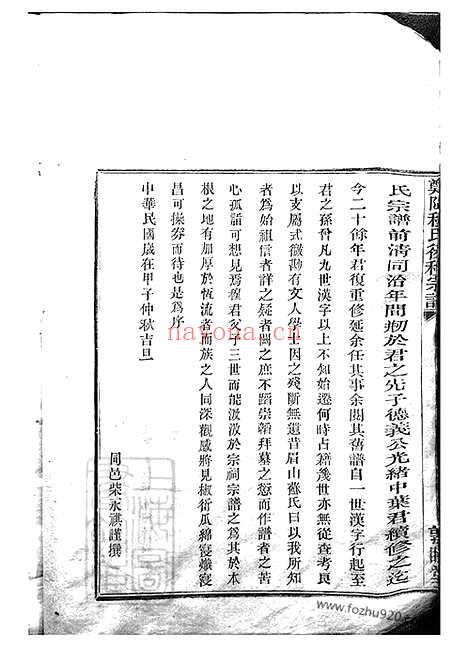 氏宗譜前清同治年間刱於君之先子德義公光緒中葉君續修之迄
今二十餘年君復重修延余任其事余閱其舊譜自一世漢字行起至
君之孫晉凡九世漢字以上不知自何始遷何時占籍幾世亦無從查考良
以支屬式微尠有文人學士因之殘斷無遺昔眉山蘇氏曰以我所知
者為始祖信者詳之疑者闕之庶不蹈崇韜拜墓之愆而作譜者之苦
心孤詣可想見焉握君父子三世而能汲汲於宗祠宗譜之為其於本
根之地有加厚於恆流者而族之人同深觀感將見椒衍瓜綿寖熾寖
昌可操券而待也是為序
中華民國歲在甲子仲秋吉旦
同邑柴永祺謹撰
nayona.cn
www.fozhu920.com